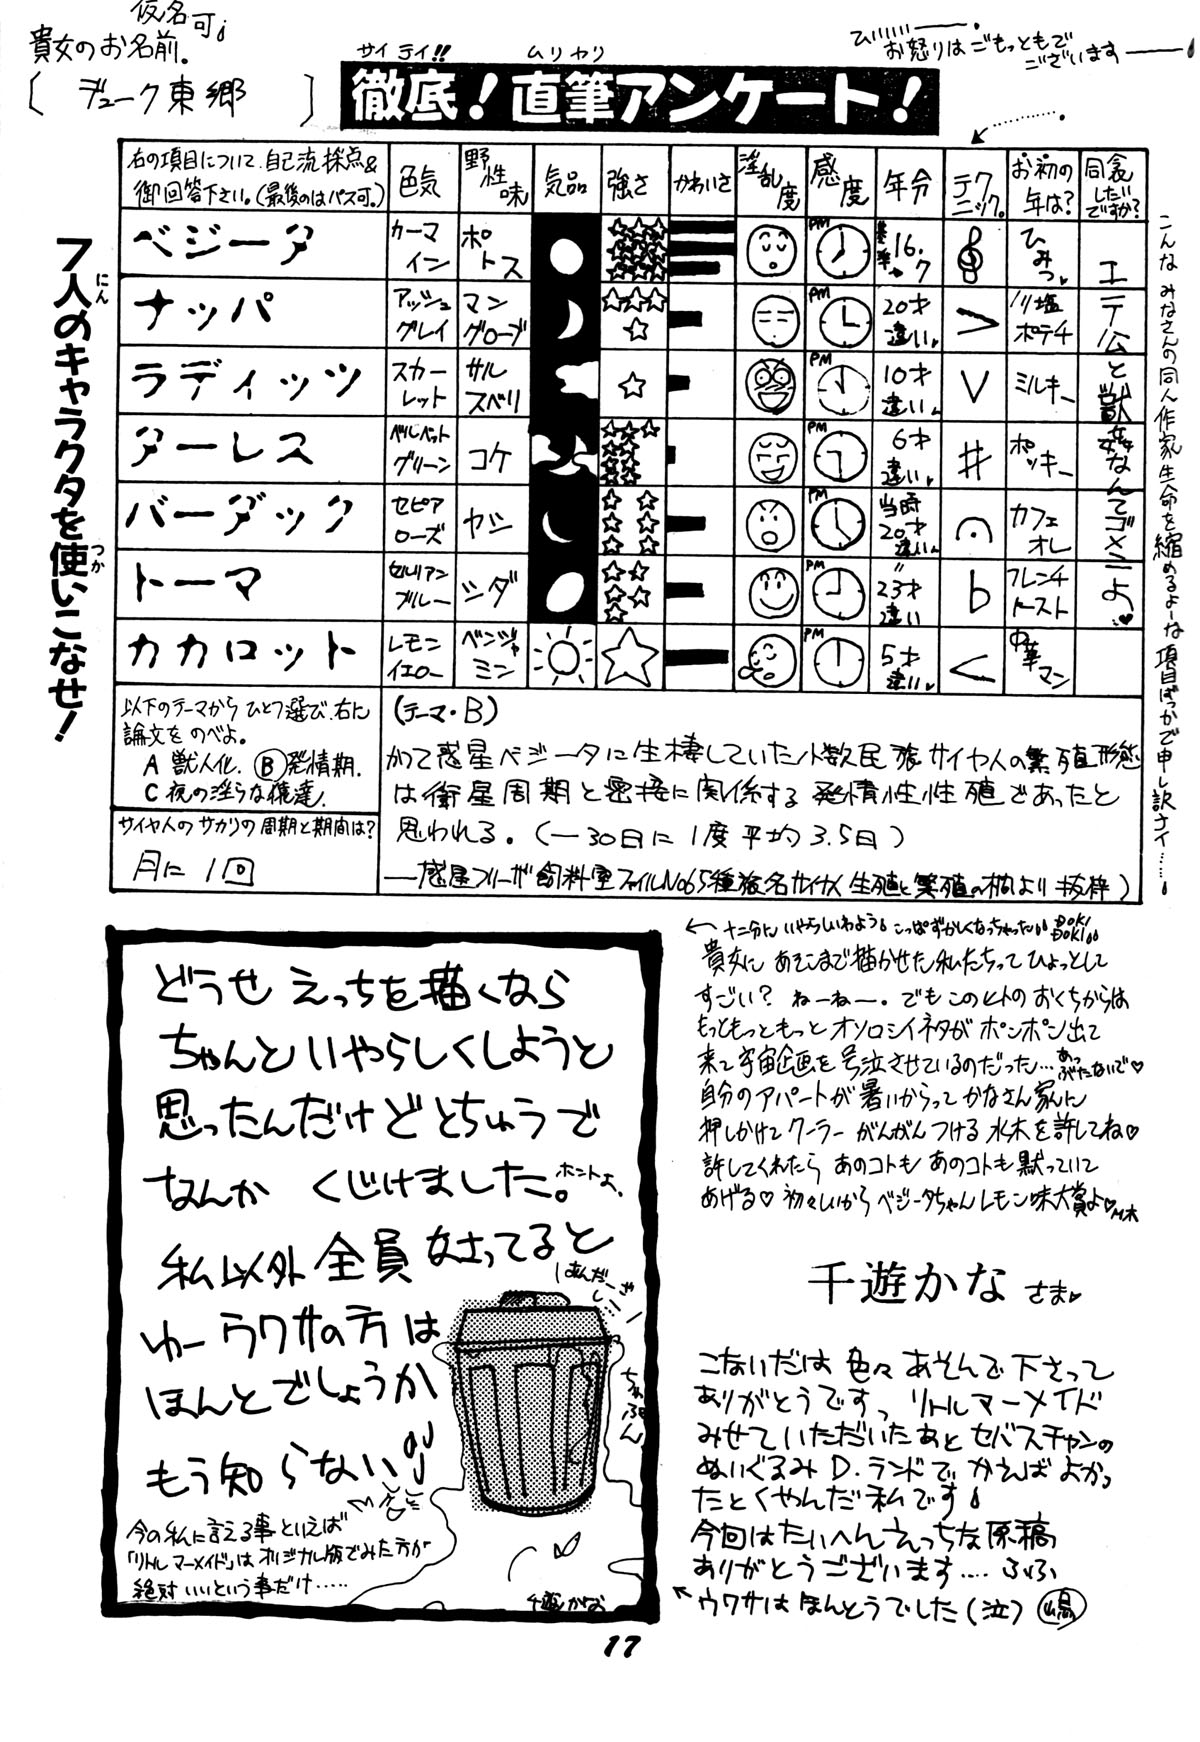 仮名可
貴女のお名前。
[ デューク東郷 ]
サイテイ!! ムリヤリ
徹底!直筆アンケート!
ひいいい――。
お怒りはごもっともで
ございます――
7人のキャラクタを使いこなせ!
にん
つか
右の項目について、自己流採点&
御回答下さい。(最後のはパス可。)
色気
野性味
気品
強さ
かわいさ
淫乱度
感度
年分
テクニック。
お初の年は?
ベジータ
カーマイン
ポトス
PM
基準
16.7
ひみつ
ナッパ
アッシュグレイ
マングローブ
PM
20才違い
ノリ塩ポテチ
ラディッツ
スカーレット
サルスベリ
PM
10才違い
ミルキー
ターレス
ベルベットグリーン
コケ
6才違い
ポッキー
バーダック
セピアローズ
ヤシ
PM
当時20才違い
カフェオレ
トーマ
セルリアンブルー
シダ
PM
〃23才違い
フレンチトースト
カカロット
レモンイエロー
ベンジャミン
PM
5才違い
中華マン
こんなみなさんの同人作家生命を縮めるよーな項目ばっかで申し訳ナイ……
以下のテーマからひとつ選び、右に
論文をのべよ。
A 獣人化. Ⓑ発情期.
C 夜の淫らな俺達.
サイヤ人のサカリの周期と期間は?
月に1回
(テーマ・B)
かつて惑星ベジータに生棲していた小数民族サイヤ人の繁殖形態
は衛星周期と密接に関係する発情性生殖であったと
思われる。(―30日に1度平均3.5日)
どうせえっちを描くなら
ちゃんといやらしくしようと
思ったんだけどとちゅうで
なんか くじけました。ホントよ、
私以外全員女さってると
ゆーウワサの方は
ほんとでしょうか
もう知らない
ちゃぷん
今の私に言える事といえば
「リトルマーメイド」はオリジナル版でみた方が
絶対いいという事だけ……
千遊かな
←十二分にいやらしいわよう こっぱずかしくなっちゃった DOKI DOKI
貴女にあそこまで描かせた私たちってひょっとして
すごい? ねーねー。でもこのヒトのおくちからは
もっともっともっとオソロシイネタがポンポン出て
来て宇宙企画を号泣させているのだった… あっぶたないで♡
自分のアパートが暑いからってかなさん家に
押しかけてクーラーがんがんつける水木を許してね♡
許してくれたらあのコトもあのコトも黙っていて
あげる♡ 初々しいからベジータちゃんレモン味大賞よ♡M木
千遊かな さま
こないだは色々あそんで下さって
ありがとうですっ リトルマーメイド
みせていただいたあとセバスチャンの
ぬいぐるみD.ランドでかえばよかっ
たとくやんだ私です
今回はたいへんえっちな原稿
ありがとうございます…. ふふ
←ウワサはほんとうでした(泣)
17